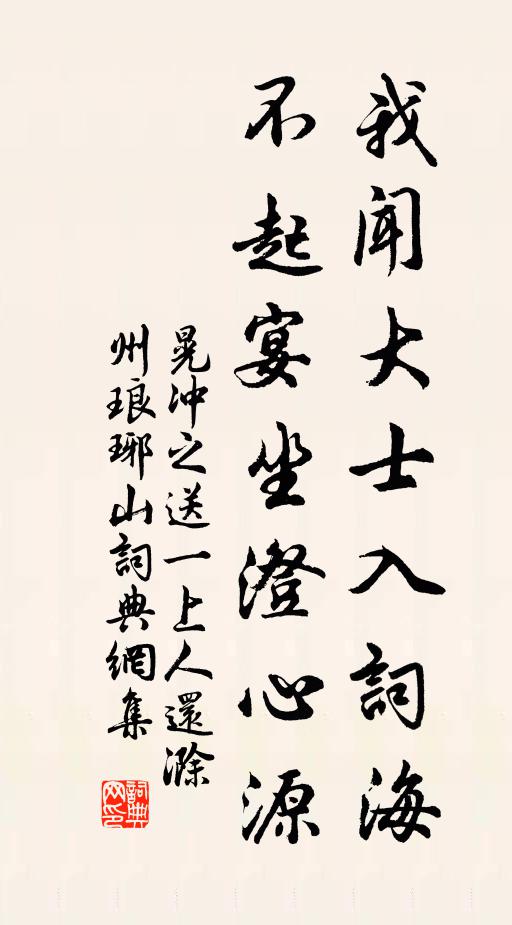 我聞大士入詞海
不起宴坐澄心源
晁冲之送一上人還滁
州琅琊山詞典網集
詞典网印